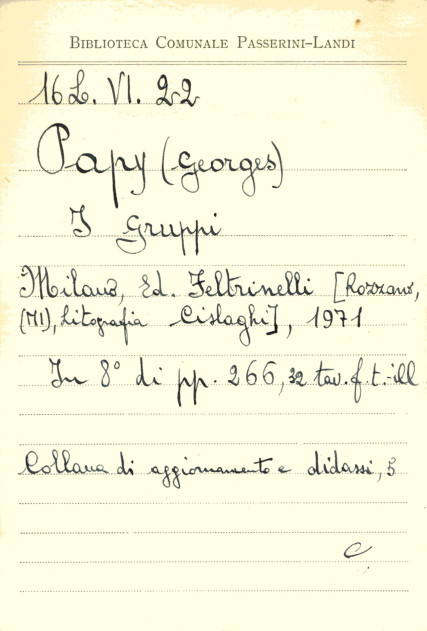 BIBLIOTECA COMUNALE PASSERINI-LANDI
16 L. VI. 22
Papy (Georges)
I Gruppi
Milano, Ed. Feltrinelli [Rozzano,
(MI), Litografia Cislaghi], 1971
In 8° di pp. 266, 32 tav. f. t. - ill
Collana di aggiornamento e didassi, 5
C